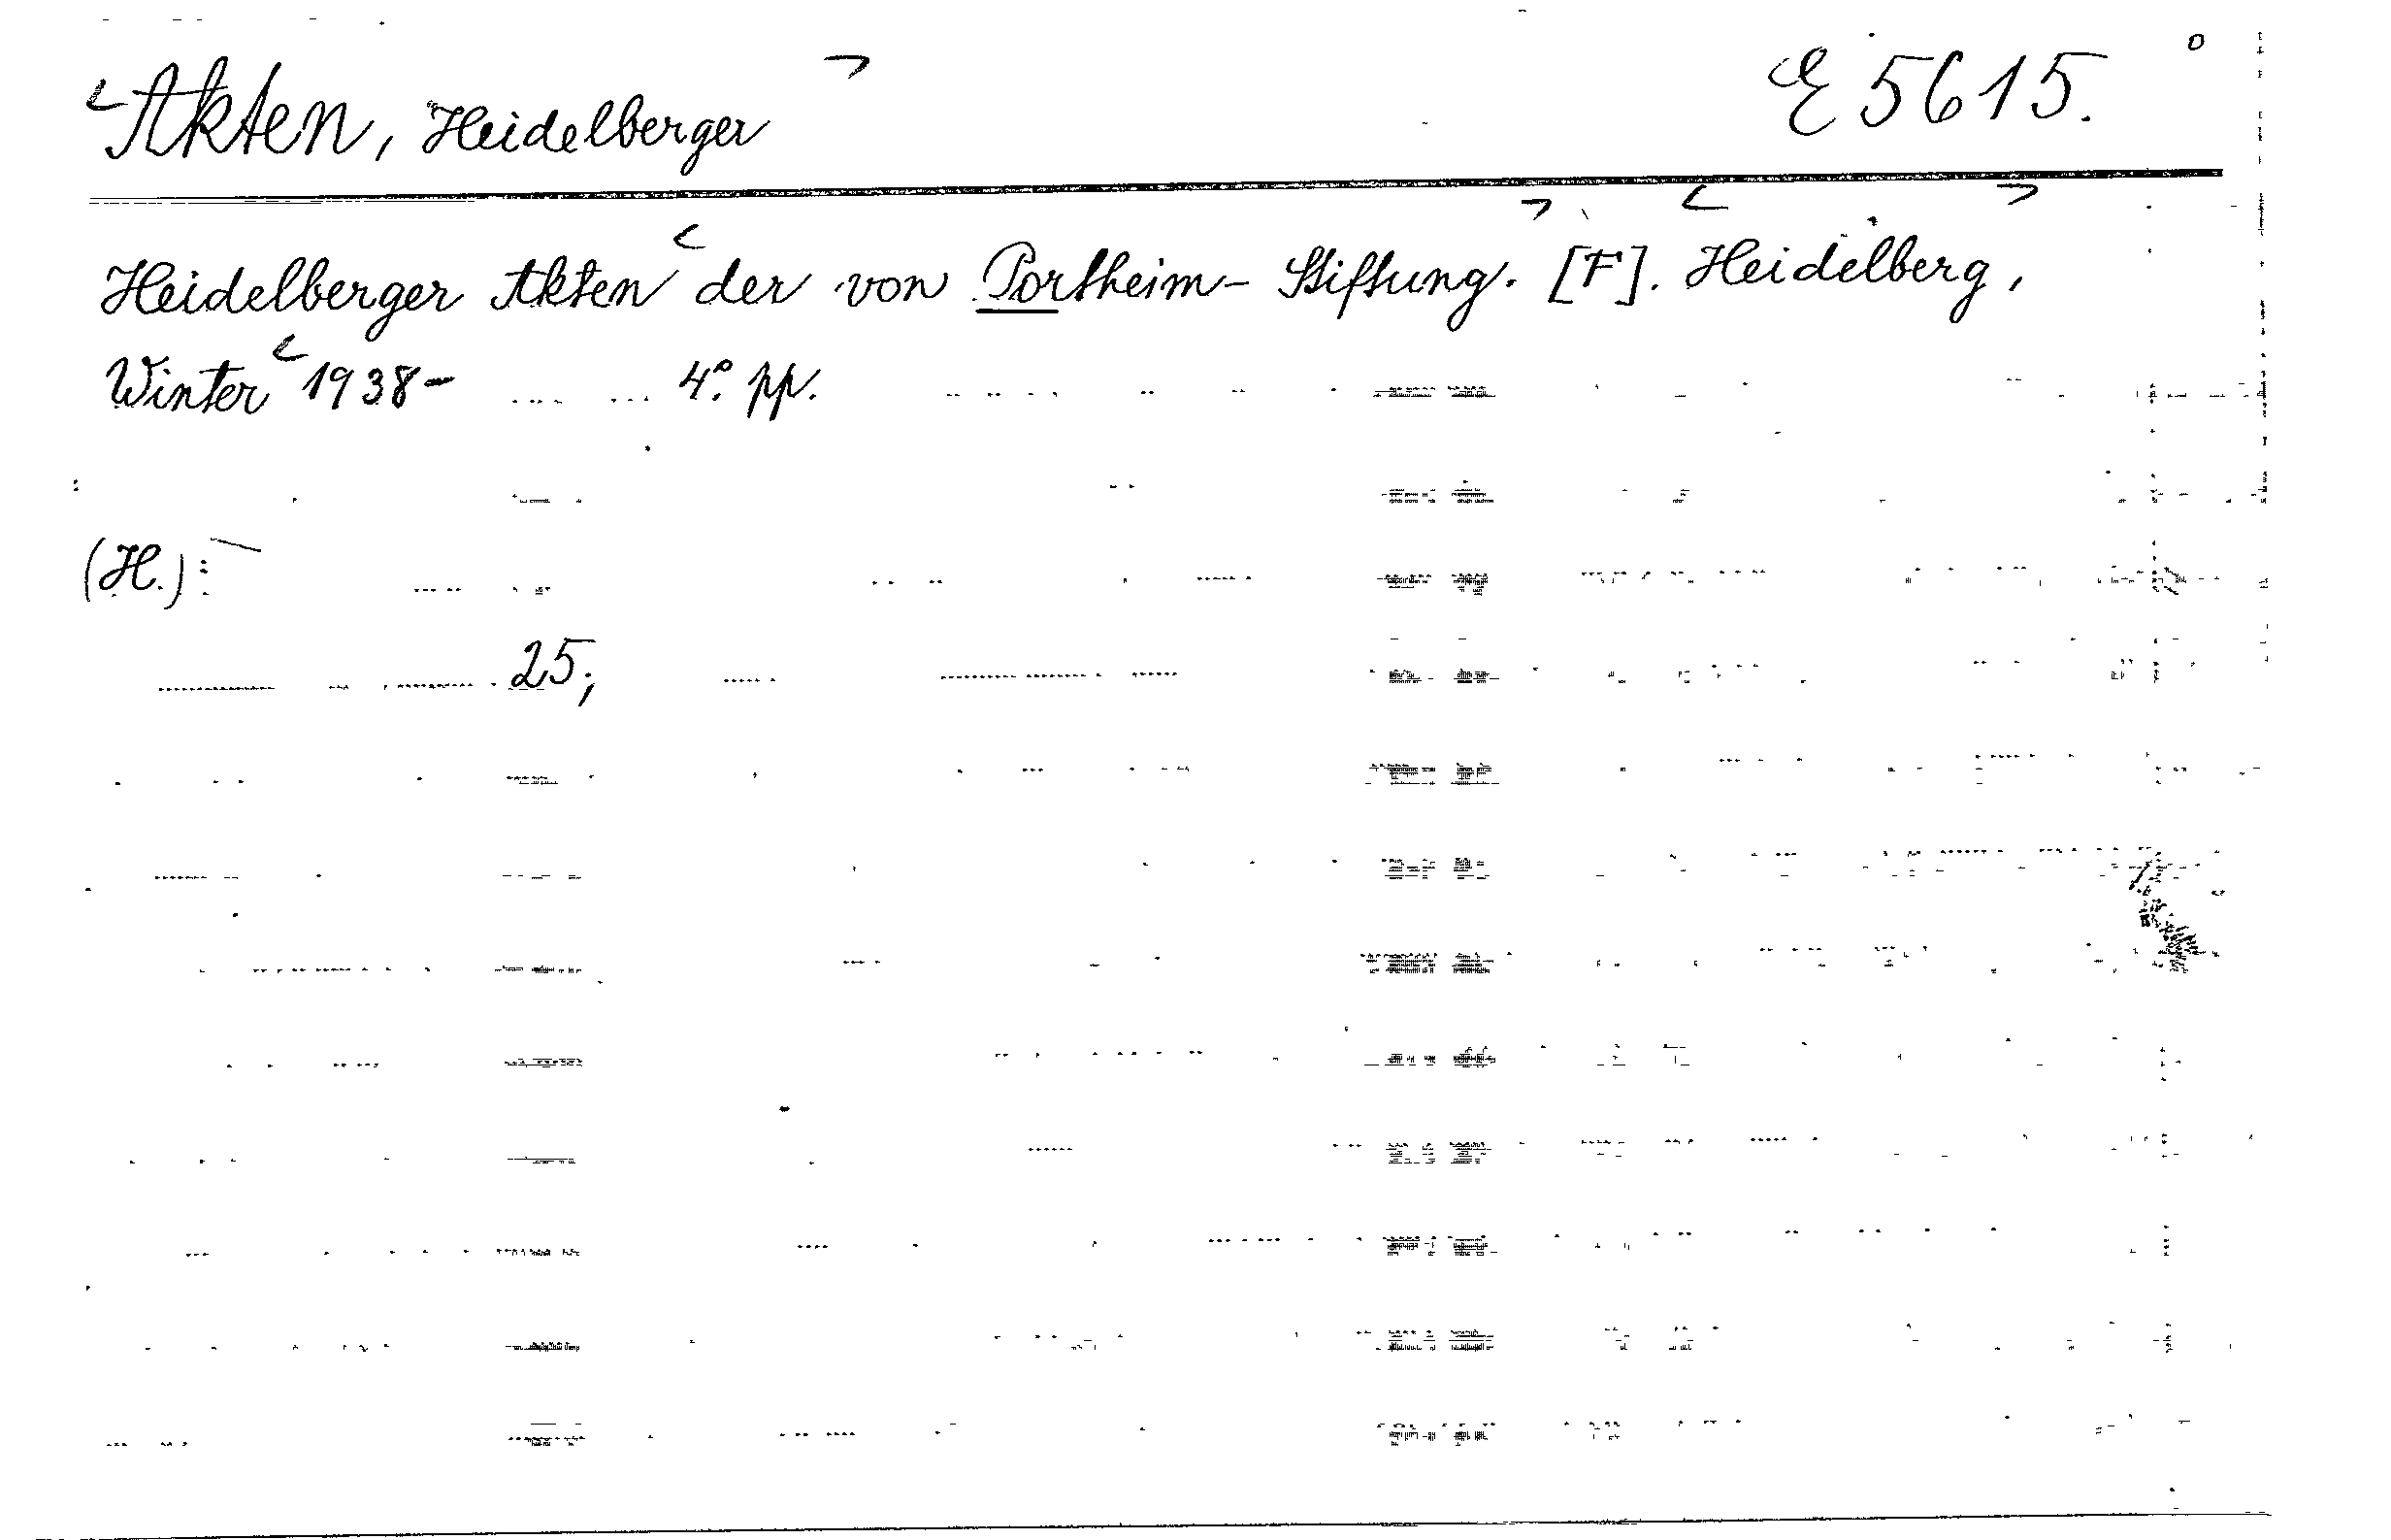 Akten, Heidelberger E 5615.
Heidelberger Akten der von Portheim-Stiftung. [F]. Heidelberg,
Winter 1938- 4°. pp.
(H.):
25;